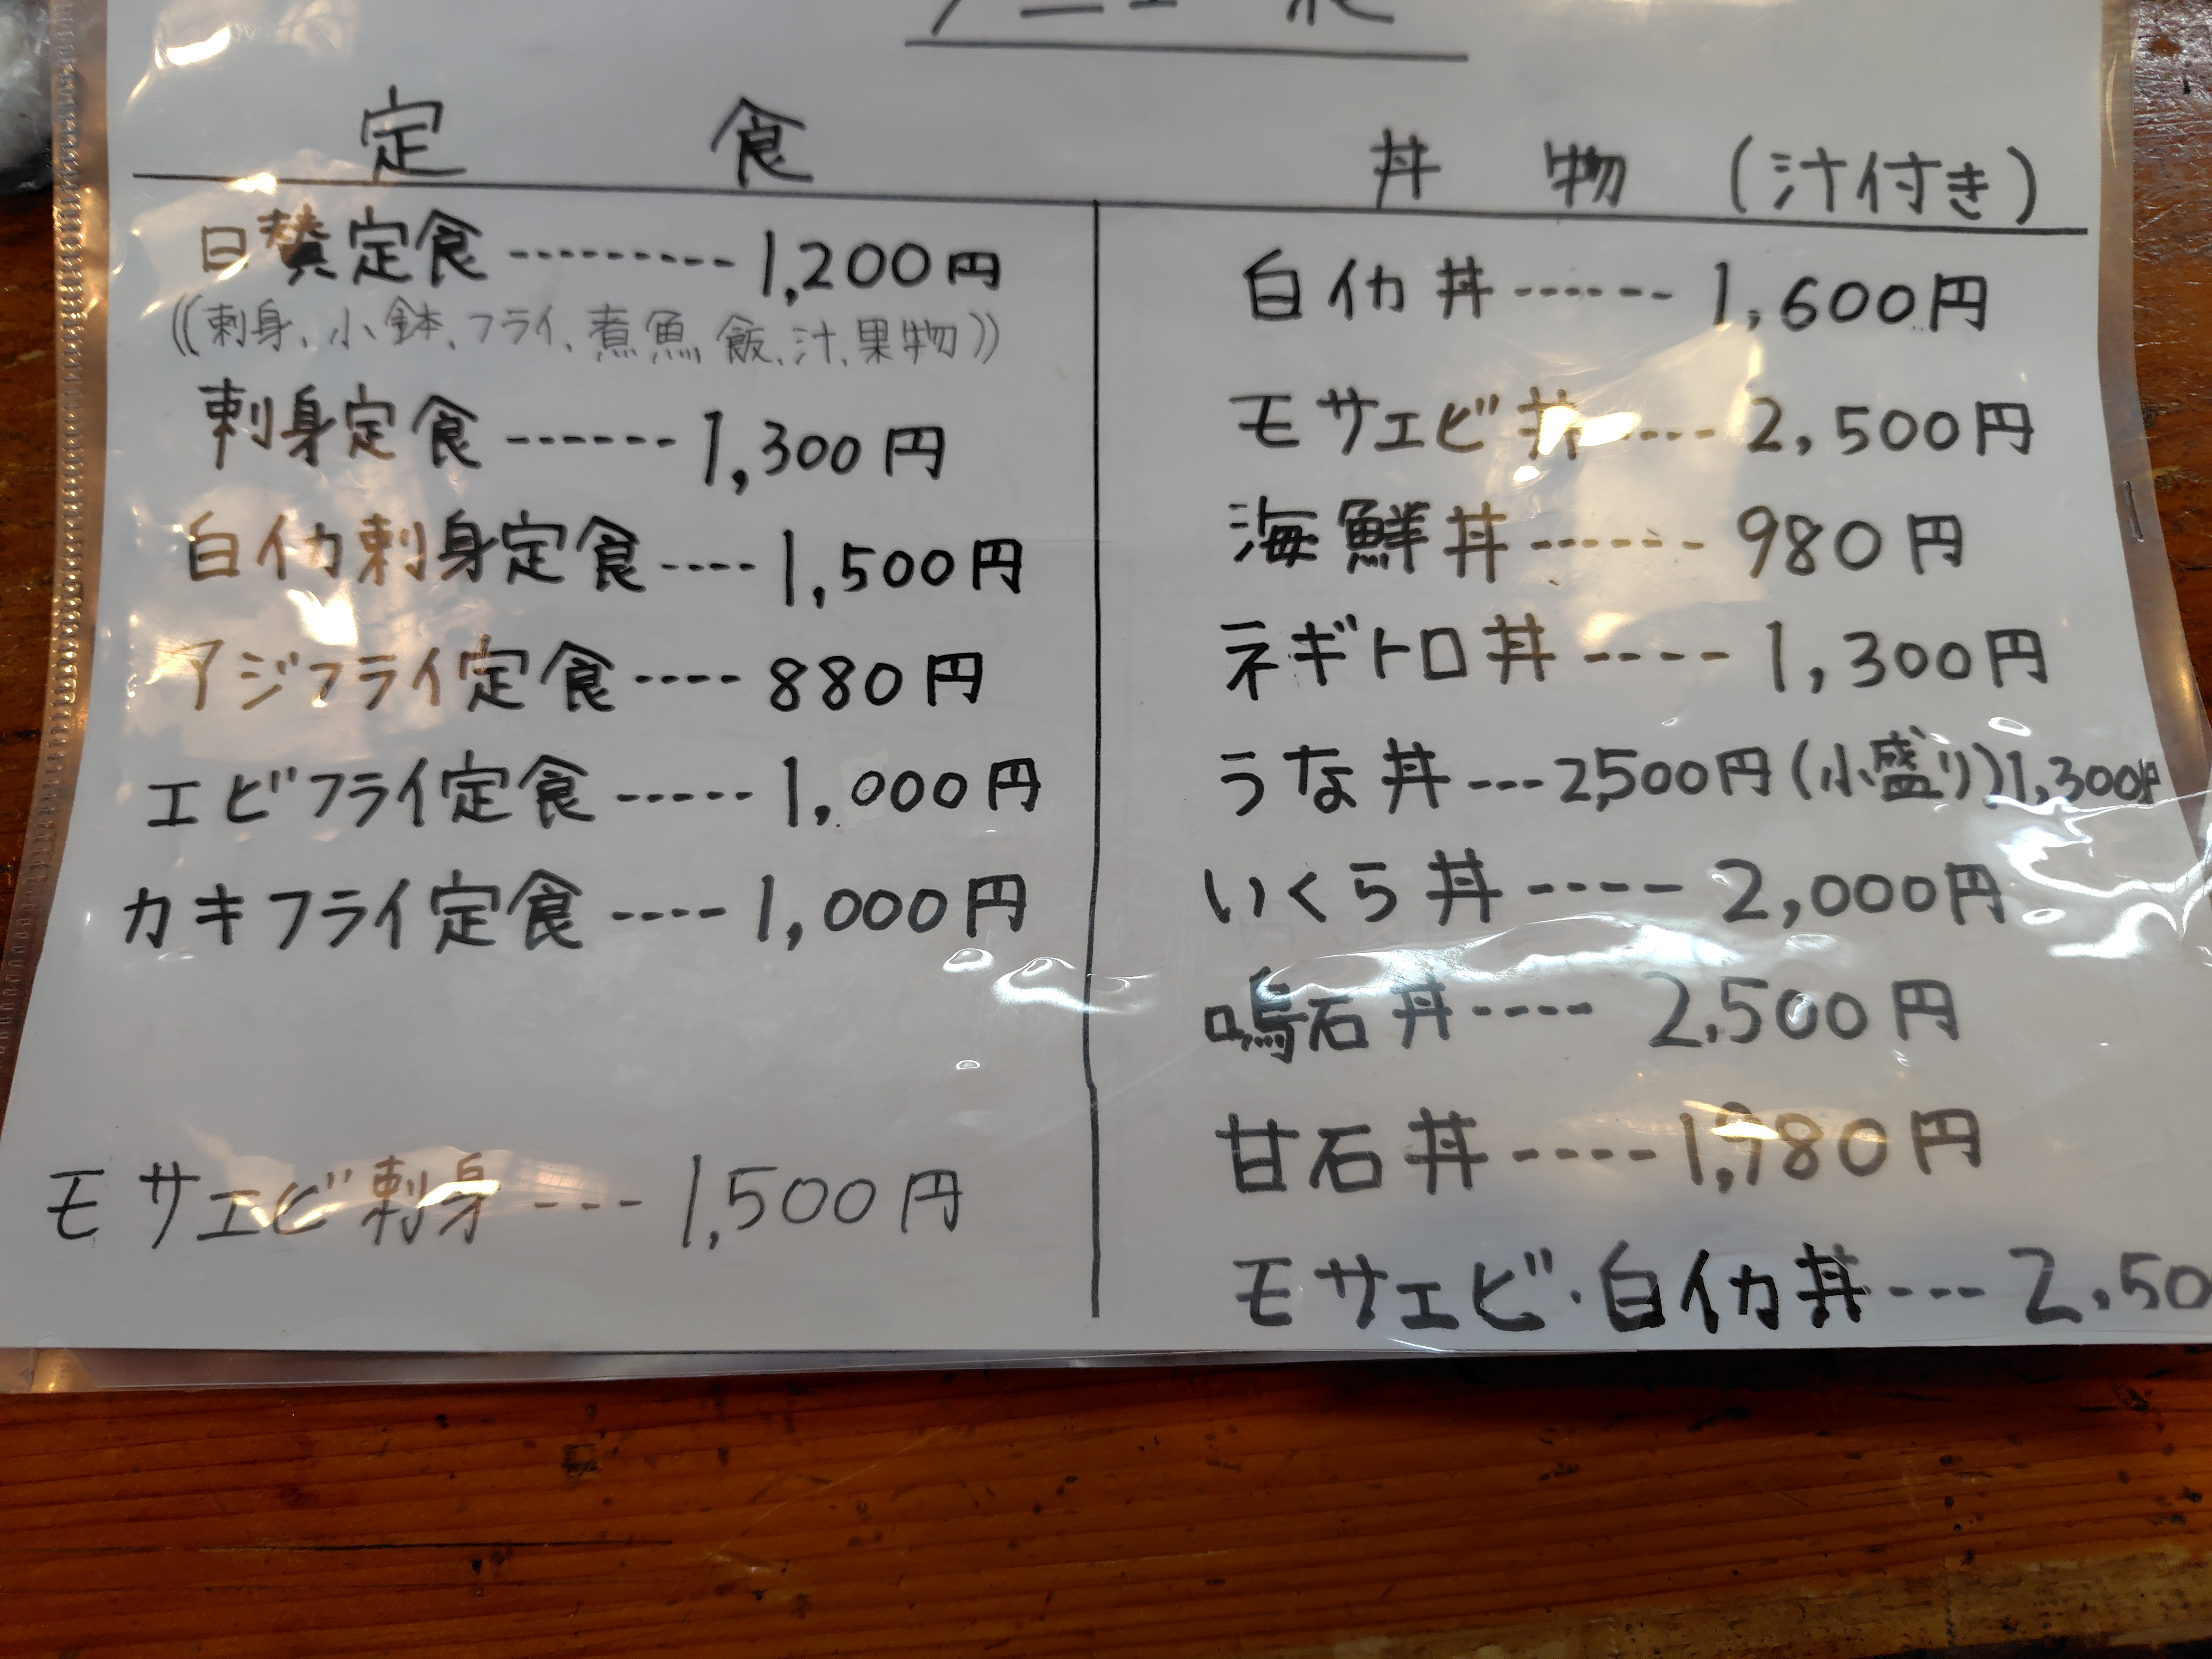 定食
日賛定食---------1,200円
((刺身、小鉢、フライ、煮魚、飯、汁、果物))
刺身定食------1,300円
白イカ刺身定食----1,500円
アジフライ定食----880円
エビフライ定食-----1,000円
カキフライ定食----1,000円
モサエビ刺身---1,500円
丼物(汁付き)
白イカ丼------1,600円
モサエビ丼----2,500円
海鮮丼------980円
ネギトロ丼----1,300円
うな丼---2,500円(小盛り)1,300円
いくら丼----2,000円
鳴石丼----2,500円
甘石丼----1,980円
モサエビ・白イカ丼---2,50